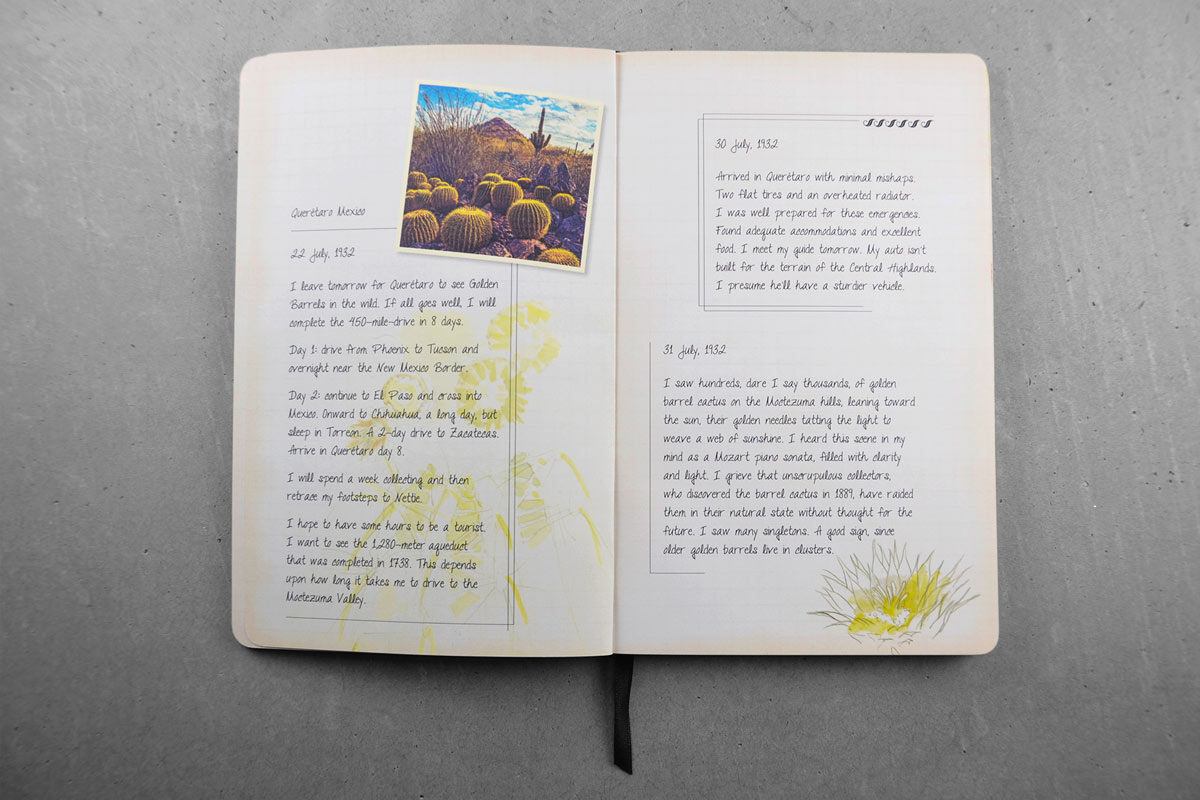 Querétaro Mexico
22 July, 1932
I leave tomorrow for Querétaro to see Golden
Barrels in the wild. If all goes well, I will
complete the 450-mile-drive in 8 days.
Day 1: drive from Phoenix to Tucson and
overnight near the New Mexico Border.
Day 2: continue to El Paso and cross into
Mexico. Onward to Chihuahua, a long day, but
sleep in Torreon. A 2-day drive to Zacatecas.
Arrive in Querétaro day 8.
I will spend a week collecting and then
retrace my footsteps to Nettie.
I hope to have some hours to be a tourist.
I want to see the 1,280-meter aqueduct
that was completed in 1738. This depends
upon how long it takes me to drive to the
Moctezuma Valley.
30 July, 1932
Arrived in Querétaro with minimal mishaps.
Two flat tires and an overheated radiator.
I was well prepared for these emergencies.
Found adequate accommodations and excellent
food. I meet my guide tomorrow. My auto isn't
built for the terrain of the Central Highlands.
I presume he'll have a sturdier vehicle.
31 July, 1932
I saw hundreds, dare I say thousands, of golden
barrel cactus on the Moctezuma hills, leaning toward
the sun, their golden needles tatting the light to
weave a web of sunshine. I heard this scene in my
mind as a Mozart piano sonata, filled with clarity
and light. I grieve that unscrupulous collectors,
who discovered the barrel cactus in 1889, have raided
them in their natural state without thought for the
future. I saw many singletons. A good sign, since
older golden barrels live in clusters.